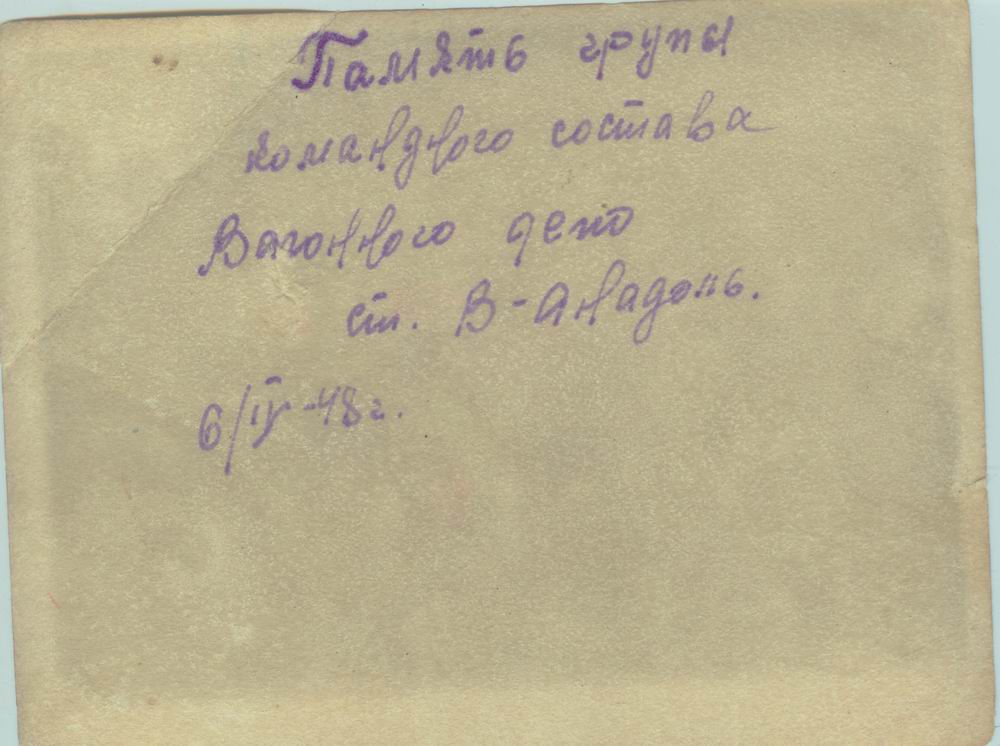 Память групы
командного состава
Вагонного депо
ст. В-Анадоль.
6/IV-48г.